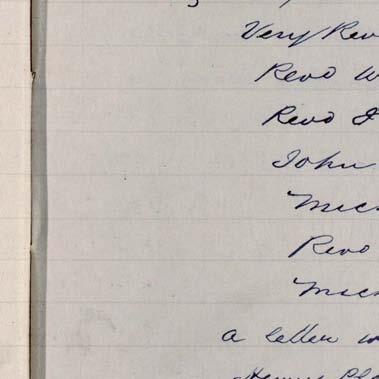 Very Rev
Revd W
Revd
John
Mic
Revd
Mic
a letter w